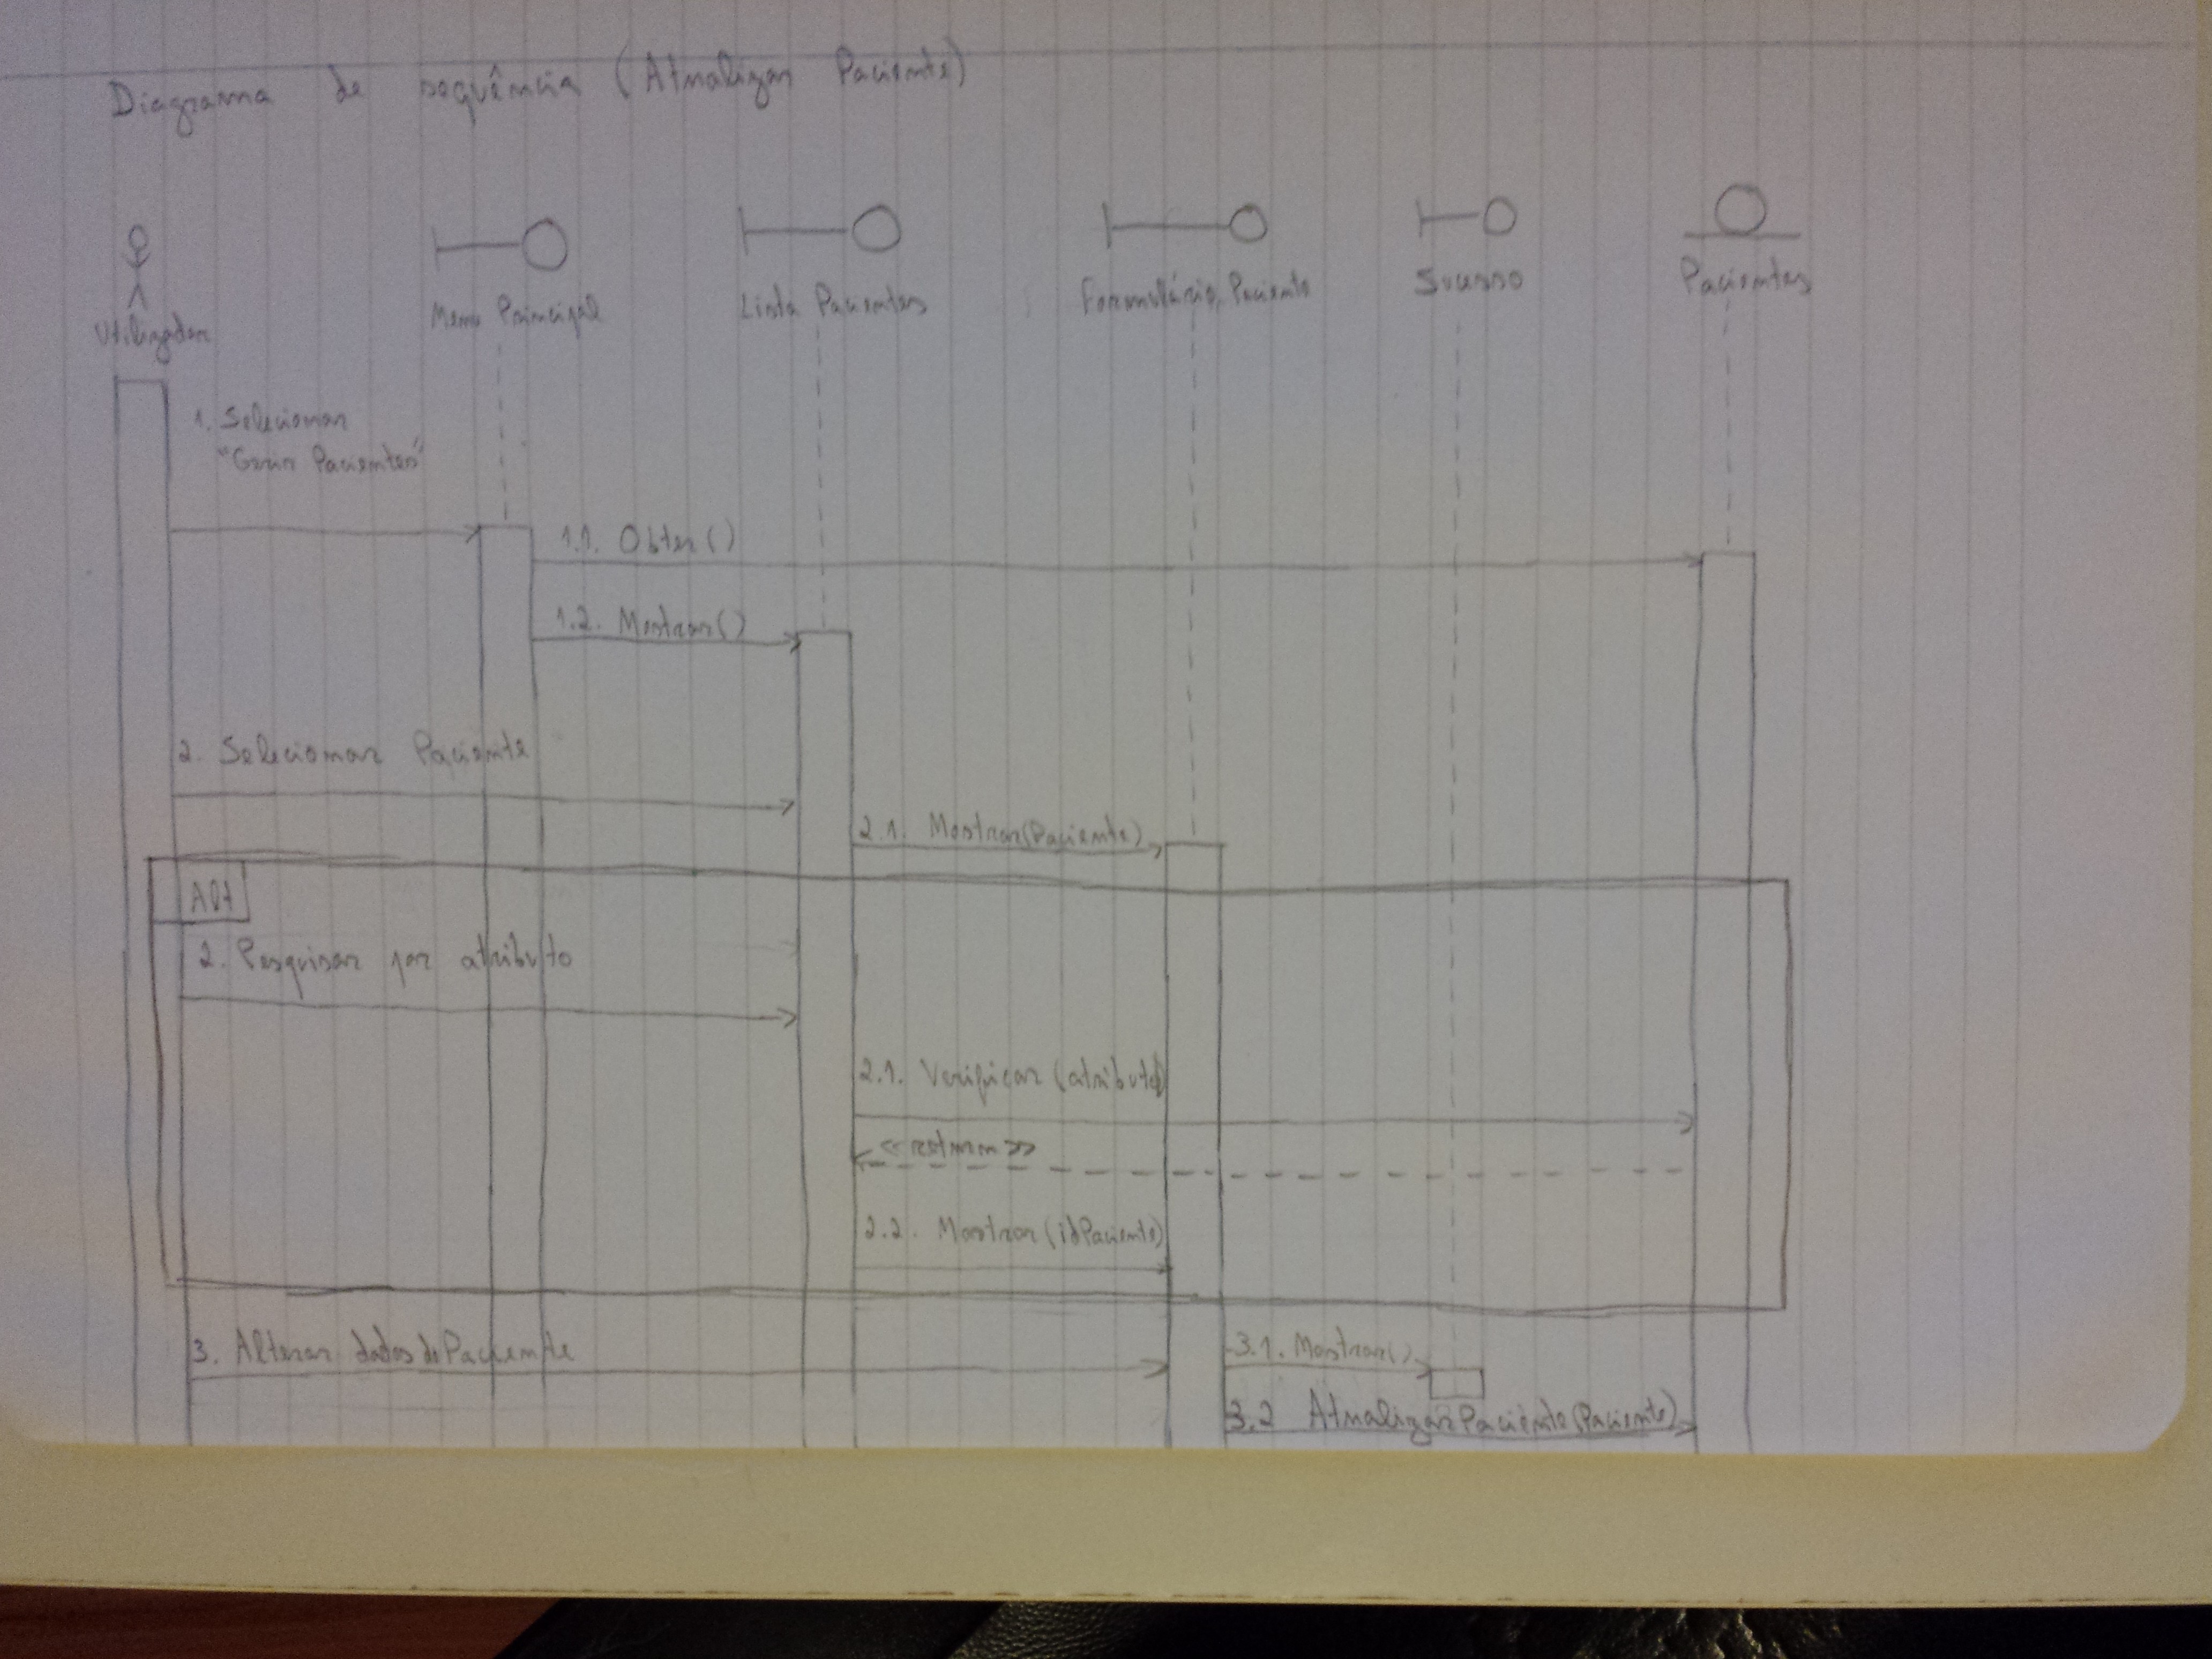 Diagrama de sequência (Atualizar Paciente)
Utilizador
Menu Principal
Lista Pacientes
Formulário Paciente
Sucesso
Pacientes
1. Selecionar
"Gerir Pacientes"
1.1. Obter()
1.2. Mostrar()
2. Selecionar Paciente
2.1. Mostrar(Paciente)
Alt
2. Pesquisar por atributo
2.1. Verificar (atributo)
<<return>>
2.2. Mostrar(idPaciente)
3. Alterar dados do Paciente
3.1. Mostrar()
3.2 AtualizarPaciente(Paciente)